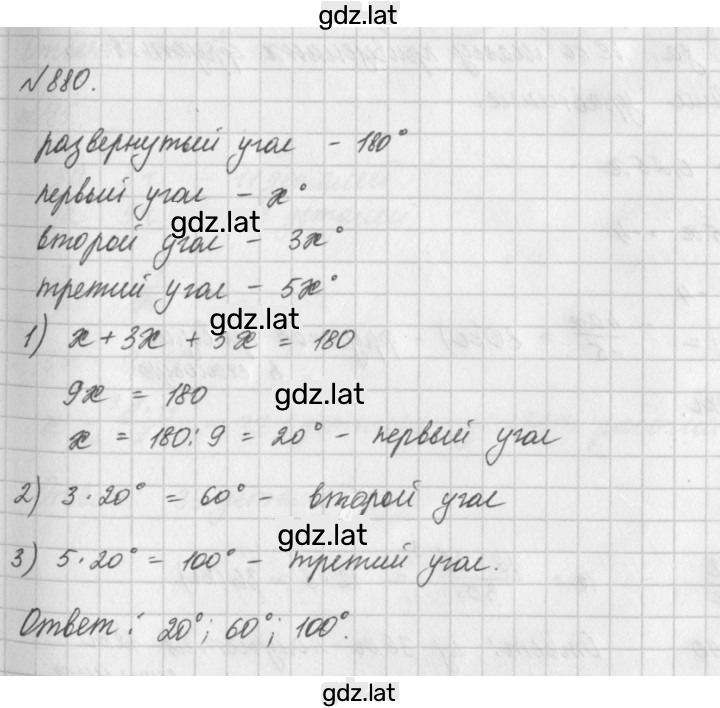 gdz.lat
№880.
развернутый угол - 180°
первый угол - x°
gdz.lat
второй угол - 3x°
третий угол - 5x°
gdz.lat
1) x + 3x + 5x = 180
9x = 180
gdz.lat
x = 180:9 = 20° - первый угол
2) 3·20° = 60° - второй угол
gdz.lat
3) 5·20° = 100° - третий угол.
Ответ: 20°; 60°; 100°.
gdz.lat